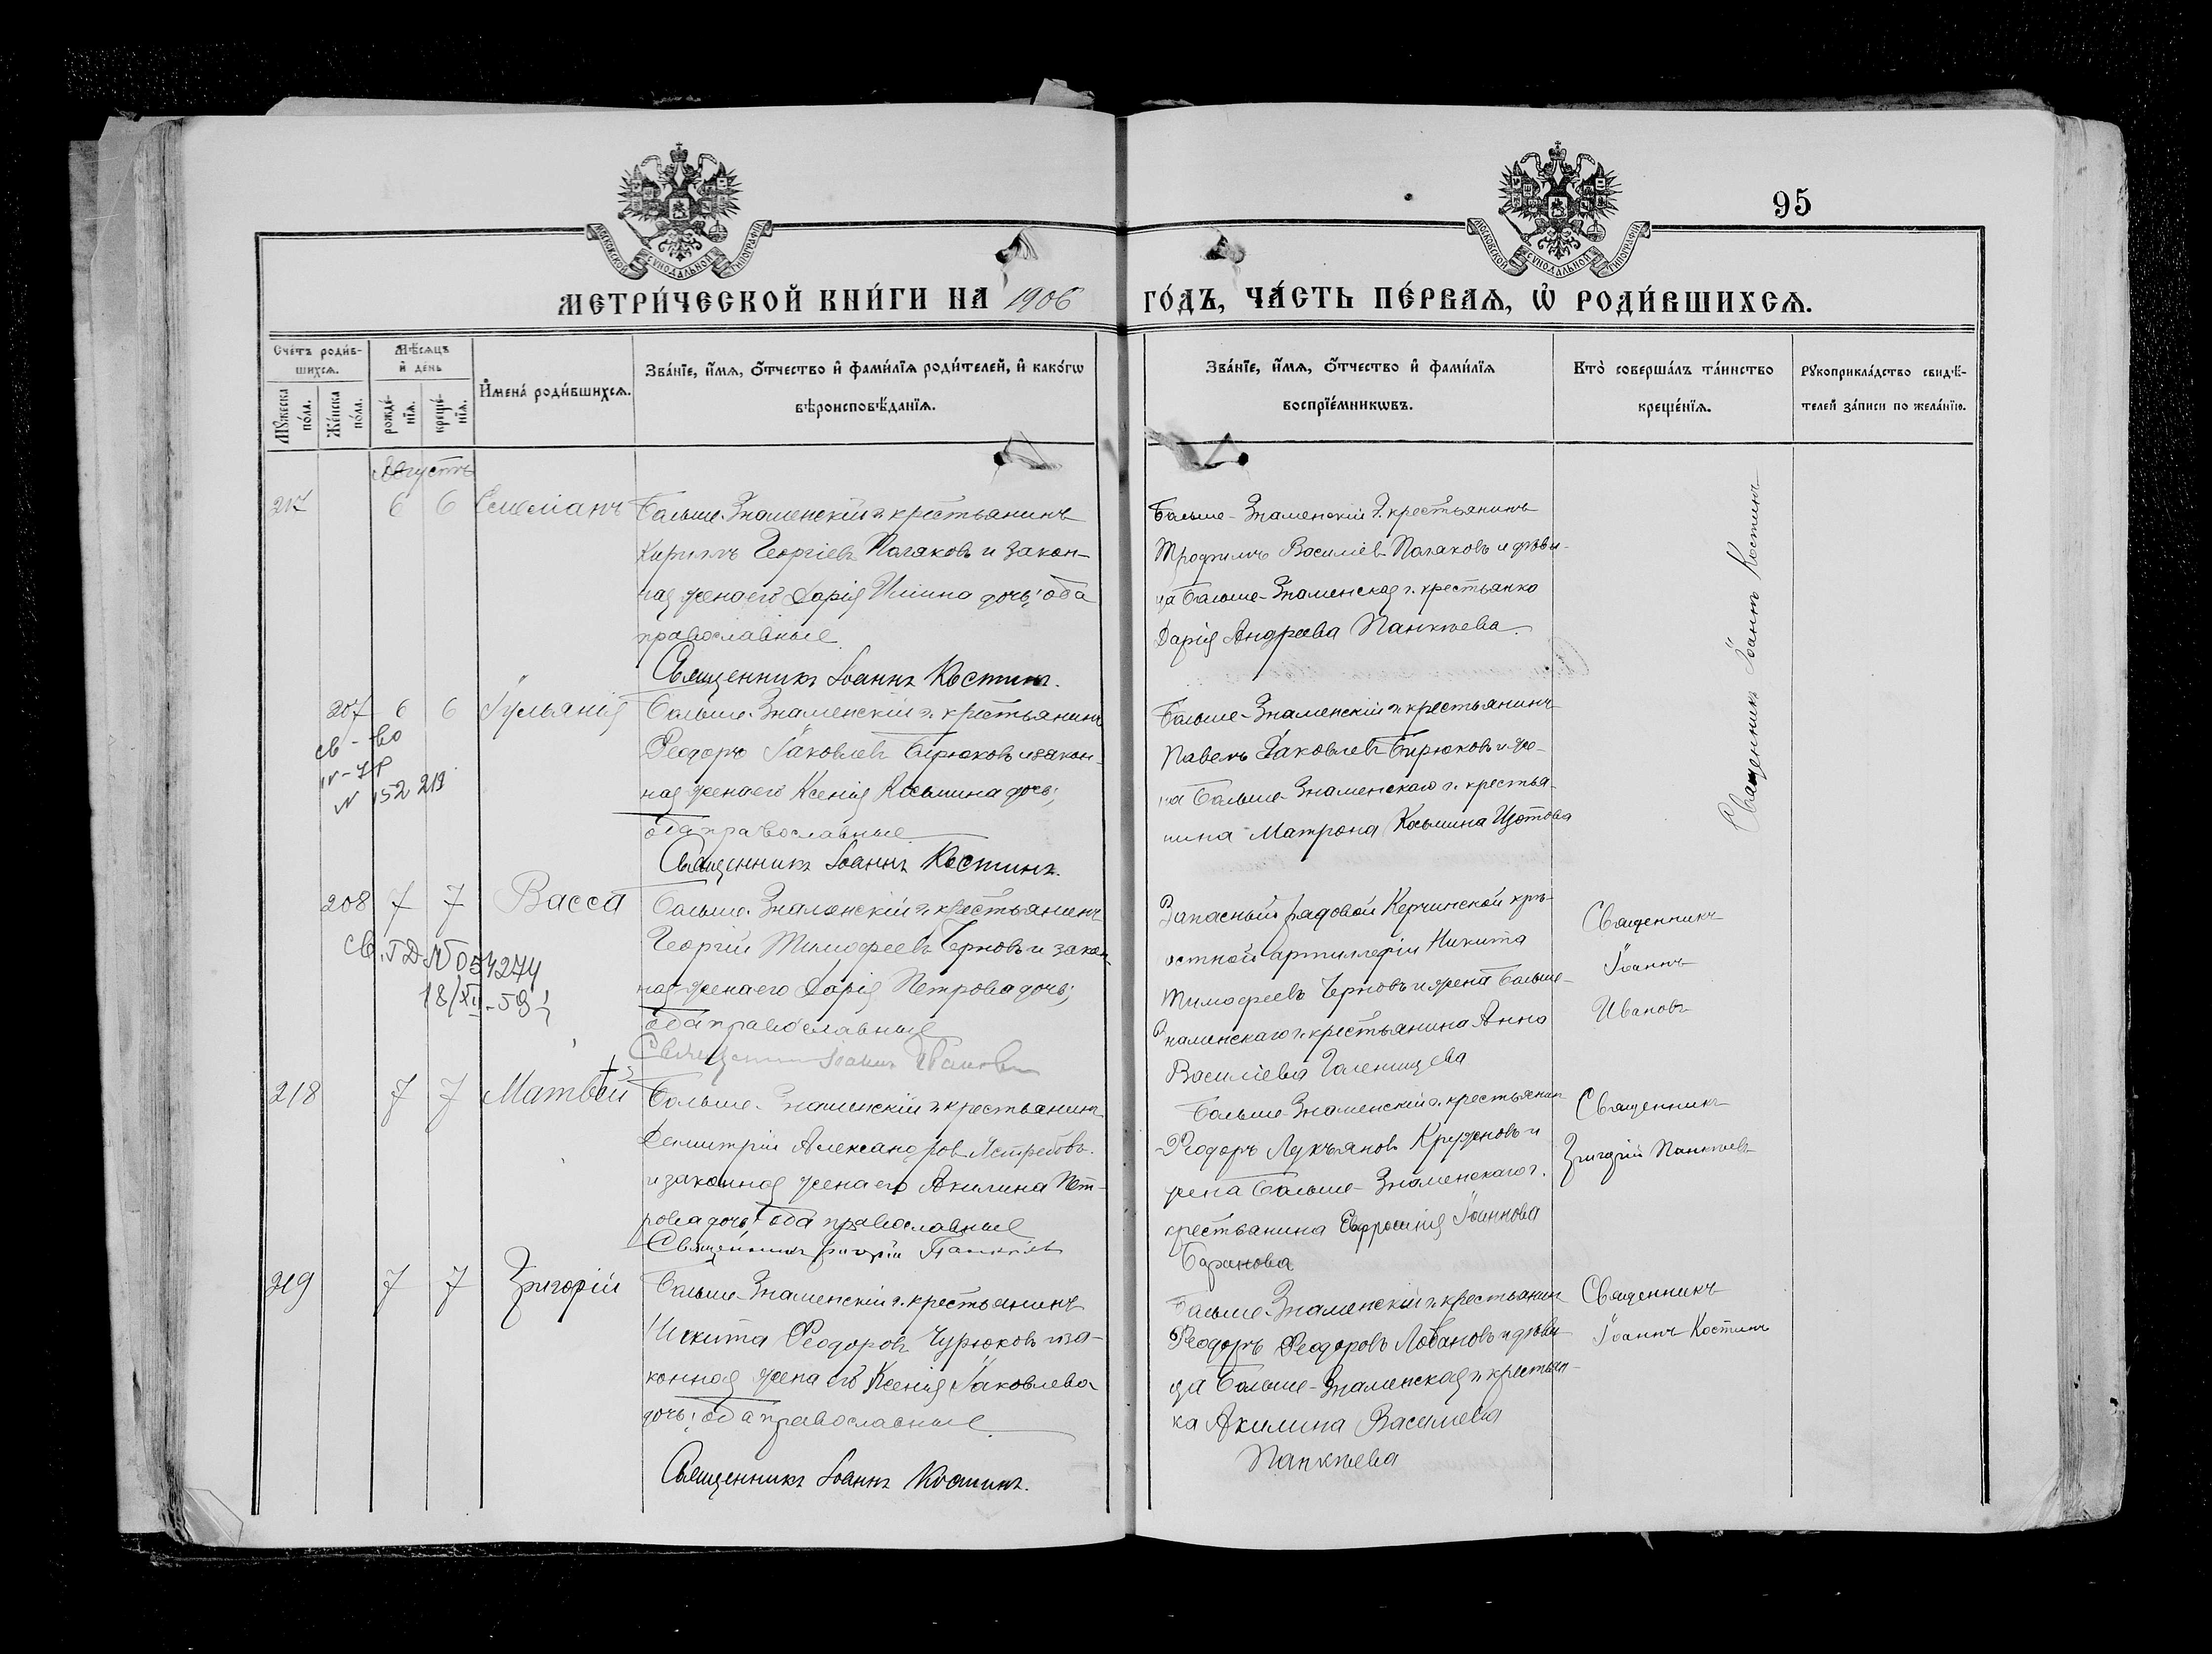 95
МОСКОВСКОЙ СѴНОДАЛЬНОЙ ТИПОГРАФІИ
МОСКОВСКОЙ СѴНОДАЛЬНОЙ ТИПОГРАФІИ
МЕТРИ́ЧЕСКОЙ КНИ́ГИ НА 1906 ГО́ДЪ, ЧА́СТЬ ПЕ́РВАѦ, Ѡ҆ РОДИ́ВШИХСѦ.
Счетъ роди́в-
шихсѧ.
Мꙋжеска по́ла.
Же́нска по́ла.
Мѣ́сѧцъ
и҆ день
рожде́-
нїѧ.
креще́-
нїѧ.
И҆мена̀ роди́вшихсѧ.
Зва́нїе, и҆́мѧ, ѻ҆́тчество и҆ фами́лїѧ роди́телей, и҆ како́гѡ
вѣроисповѣ́данїѧ.
Зва́нїе, и҆́мѧ, ѻ҆́тчество и҆ фами́лїѧ
воспрїе́мникѡвъ.
Кто̀ соверша́лъ та́инство
креще́нїѧ.
Рꙋкоприкла́дство свидѣ́-
телей за́писи по жела́нїю.
Августъ
217 6 6 Емеліанъ
Больше-Знаменскій г. крестьянинъ
Кириллъ Георгіевъ Поляковъ и закон-
ная жена его Дарія Иліина дочь; оба
православные.
Священникъ Іоаннъ Костинъ.
Больше-Знаменскій г. крестьянинъ
Трофимъ Василіевъ Поляковъ и дѣви-
ца Больше-Знаменская г. крестьянка
Дарія Андреева Панкѣева.
Священникъ Іоаннъ Костинъ
207 6 6 Іульянія
св-во
№ 152219
Больше-Знаменскій г. крестьянинъ
Ѳеодоръ Іаковлевъ Бирюковъ и закон-
ная жена его Ксенія Косьмина дочь;
оба православные
Священникъ Іоаннъ Костинъ.
Больше-Знаменскій г. крестьянинъ
Павелъ Іаковлевъ Бирюковъ и же-
на Больше-Знаменскаго г. крестья-
нина Матрона Косьмина Изотова
208 7 7 Васса
св. ГД-№ 054274
18/XII-59
Больше-Знаменскій г. крестьянинъ
Георгій Тимофеевъ Черновъ и закон-
ная жена его Дарія Петрова дочь;
оба православные
Священникъ Іоаннъ Ивановъ
Запасный рядовой Керчинской крѣ-
остной артиллеріи Никита
Тимофеевъ Черновъ и жена Больше-
Знаменскаго г. крестьянина Анна
Василіева Галенищева
Священникъ
Іоаннъ
Ивановъ
218 7 7 Матвѣй
Больше-Знаменскій г. крестьянинъ
Димитрій Александровъ Ястребовъ
и законная жена его Акилина Пет-
рова дочь; оба православные
Священникъ Григорій Панкѣевъ
Больше-Знаменскій г. крестьянин
Ѳеодоръ Лукьяновъ Круженовъ и
жена Больше-Знаменскаго г.
крестьянина Евфросинія Іоаннова
Баринова
Священникъ
Григорій Панкѣевъ
219 7 7 Григорій
Больше-Знаменскій г. крестьянинъ
Никита Ѳеодоровъ Чурюковъ и за-
конная жена его Ксенія Іаковлева
дочь; оба православные.
Священникъ Іоаннъ Костинъ.
Больше-Знаменскій г. крестьянин
Ѳеодоръ Ѳеодоровъ Лобановъ и дѣви-
ца Больше-Знаменская г. крестьян-
ка Акилина Василіева
Панкѣева
Священникъ
Іоаннъ Костинъ